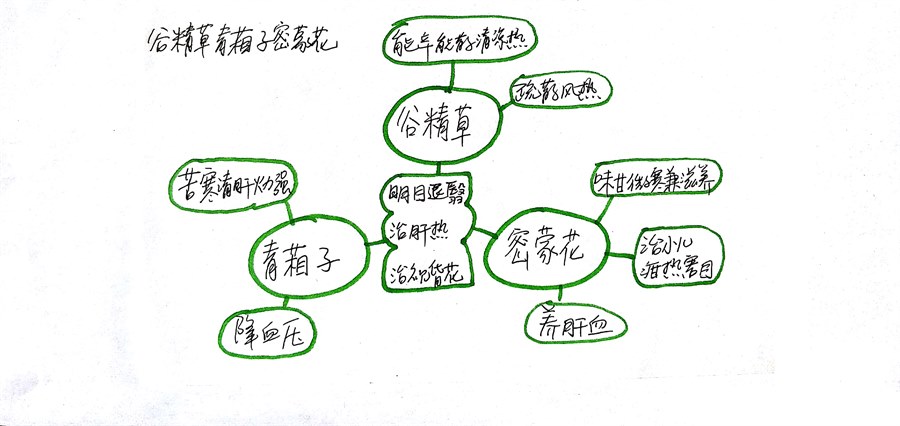 谷精草青葙子密蒙花
能升能散清凉热
谷精草
疏散风热
苦寒清肝火强
明目退翳
治肝热
治视昏花
青葙子
降血压
密蒙花
味甘微寒兼滋养
治小儿
疳热害目
养肝血